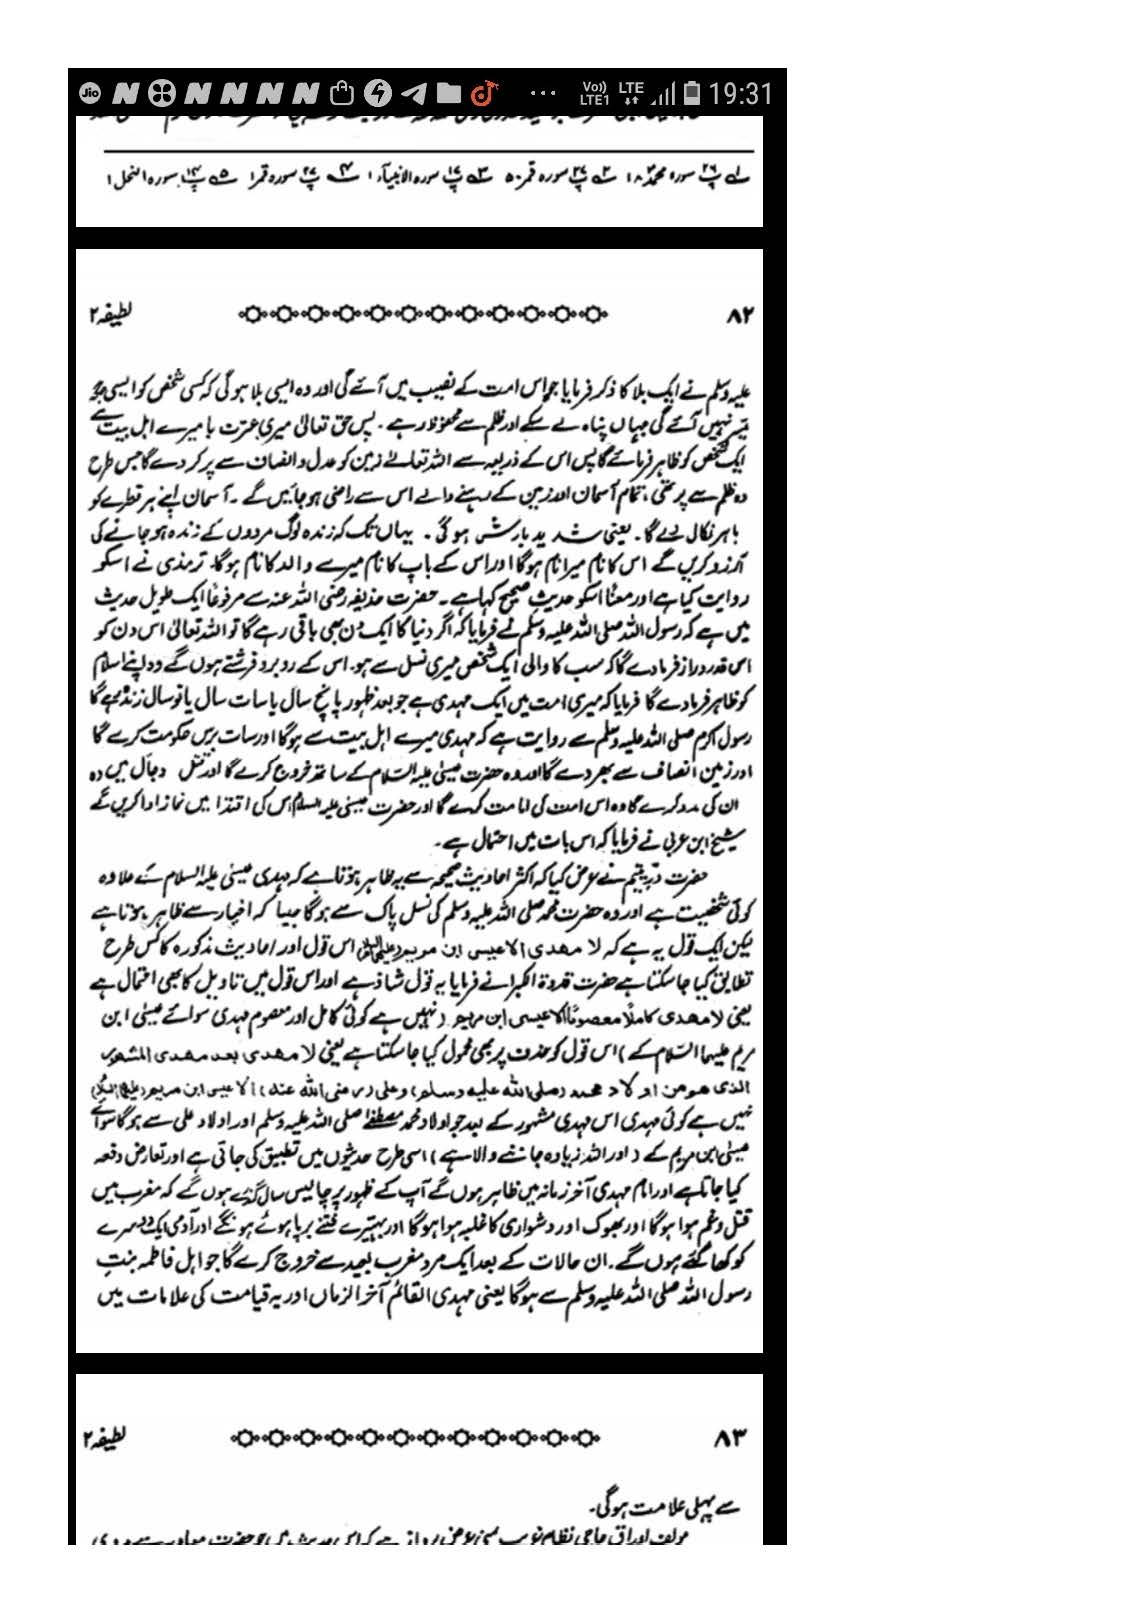 VoD LTE1 LTE 19:31
لے پ۲۶ سورہ محمد ۱۸ ۲ے پ۲۷ سورہ قمر ۵۰ ۳ے پ۱۷ سورہ الانبیآء ۱ ۴ے پ۲۷ سورہ قمر ۱ ۵ے پ۱۴ سورہ النحل ۱
۸۲ لطیفہ ۲
علیہ وسلم نے ایک بلا کا ذکر فرمایا جو اس امت کے نصیب میں آئے گی اور وہ ایسی بلا ہو گی کہ کسی شخص کو ایسی جگہ
میسر نہیں آئے گی جہاں پناہ لے سکے اور ظلم سے محفوظ رہے۔ پس حق تعالیٰ میری عترت یا میرے اہل بیت سے
ایک شخص کو ظاہر فرمائے گا پس اس کے ذریعہ سے اللہ تعالےٰ زمین کو عدل و انصاف سے پر کر دے گا جس طرح
وہ ظلم سے پر تھی، تمام آسمان اور زمین کے رہنے والے اس سے راضی ہو جائیں گے۔ آسمان اپنے ہر قطرے کو
باہر نکال لے گا۔ یعنی شدید بارش ہو گی۔ یہاں تک کہ زندہ لوگ مردوں کے زندہ ہو جانے کی
آرزو کریں گے اس کا نام میرا نام ہو گا اور اس کے باپ کا نام میرے والد کا نام ہو گا۔ ترمذی نے اسکو
روایت کیا ہے اور معناً اسکو حدیث صحیح کہا ہے۔ حضرت حذیفہ رضی اللہ عنہ سے مرفوعاً ایک طویل حدیث
میں ہے کہ رسول اللہ صلی اللہ علیہ وسلم نے فرمایا کہ اگر دنیا کا ایک دن بھی باقی رہے گا تو اللہ تعالیٰ اس دن کو
اس قدر دراز فرمادے گا کہ سب کا والی ایک شخص میری نسل سے ہو۔ اس کے روبرو فرشتے ہوں گے وہ اپنے اسلام
کو ظاہر فرمادے گا فرمایا کہ میری امت میں ایک مہدی ہے جو بعد ظہور پانچ سال یا سات سال یا نو سال زندہ رہے گا
رسول اکرم صلی اللہ علیہ وسلم سے روایت ہے کہ مہدی میرے اہل بیت سے ہو گا اور سات برس حکومت کرے گا
اور زمین انصاف سے بھر دے گا اور وہ حضرت عیسیٰ علیہ السلام کے ساتھ خروج کرے گا اور قتل دجال میں وہ
ان کی مدد کرے گا وہ اس امت کی امامت کرے گا اور حضرت عیسیٰ علیہ السلام اس کی اقتدا میں نماز ادا کریں گے
شیخ ابن عربی نے فرمایا کہ اس بات میں احتمال ہے۔
حضرت دُرِّ یتیم نے عرض کیا کہ اکثر احادیث صحیحہ سے یہ ظاہر ہوتا ہے کہ مہدی عیسیٰ علیہ السلام کے علاوہ
کوئی شخصیت ہے اور وہ حضرت محمد صلی اللہ علیہ وسلم کی نسل پاک سے ہو گا جیسا کہ اخبار سے ظاہر ہوتا ہے
لیکن ایک قول یہ ہے کہ لا مهدی الا عیسی ابن مریم (علیہما السلام) اس قول اور احادیث مذکورہ کا کس طرح
تطابق کیا جا سکتا ہے حضرت قدوۃ الکبرا نے فرمایا یہ قول شاذ ہے اور اس قول میں تاویل کا بھی احتمال ہے
یعنی لا مهدی کاملًا معصومًا الا عیسی ابن مریم (نہیں ہے کوئی کامل اور معصوم مہدی سوائے عیسیٰ ابن
مریم علیہما السلام کے) اس قول کو حذف پر بھی محمول کیا جا سکتا ہے یعنی لا مهدی بعد مهدی المشهور
الذی هو من اولاد محمد (صلی الله علیه وسلم) و علی (رضی الله عنه) الا عیسی ابن مریم (علیہما السلام)
نہیں ہے کوئی مہدی اس مہدی مشہور کے بعد جو اولاد محمد مصطفٰے صلی اللہ علیہ وسلم اور اولاد علی سے ہو گا سوائے
عیسیٰ ابن مریم کے (اور اللہ زیادہ جاننے والا ہے) اسی طرح حدیثوں میں تطبیق کی جاتی ہے اور تعارض دفعہ
کیا جاتا ہے اور امام مہدی آخر زمانہ میں ظاہر ہوں گے آپ کے ظہور پر چالیس سال گزرے ہوں گے کہ مغرب میں
قتل و غم ہوا ہو گا اور بھوک اور دشواری کا غلبہ ہوا ہو گا اور بہتیرے فتنے برپا ہوئے ہونگے اور آدمی ایک دوسرے
کو کھا گئے ہوں گے۔ ان حالات کے بعد ایک مرد مغرب بعید سے خروج کرے گا جو اہل فاطمہ بنتِ
رسول اللہ صلی اللہ علیہ وسلم سے ہو گا یعنی مہدی القائم آخر الزماں اور یہ قیامت کی علامات میں
۸۳ لطیفہ ۲
سے پہلی علامت ہو گی۔